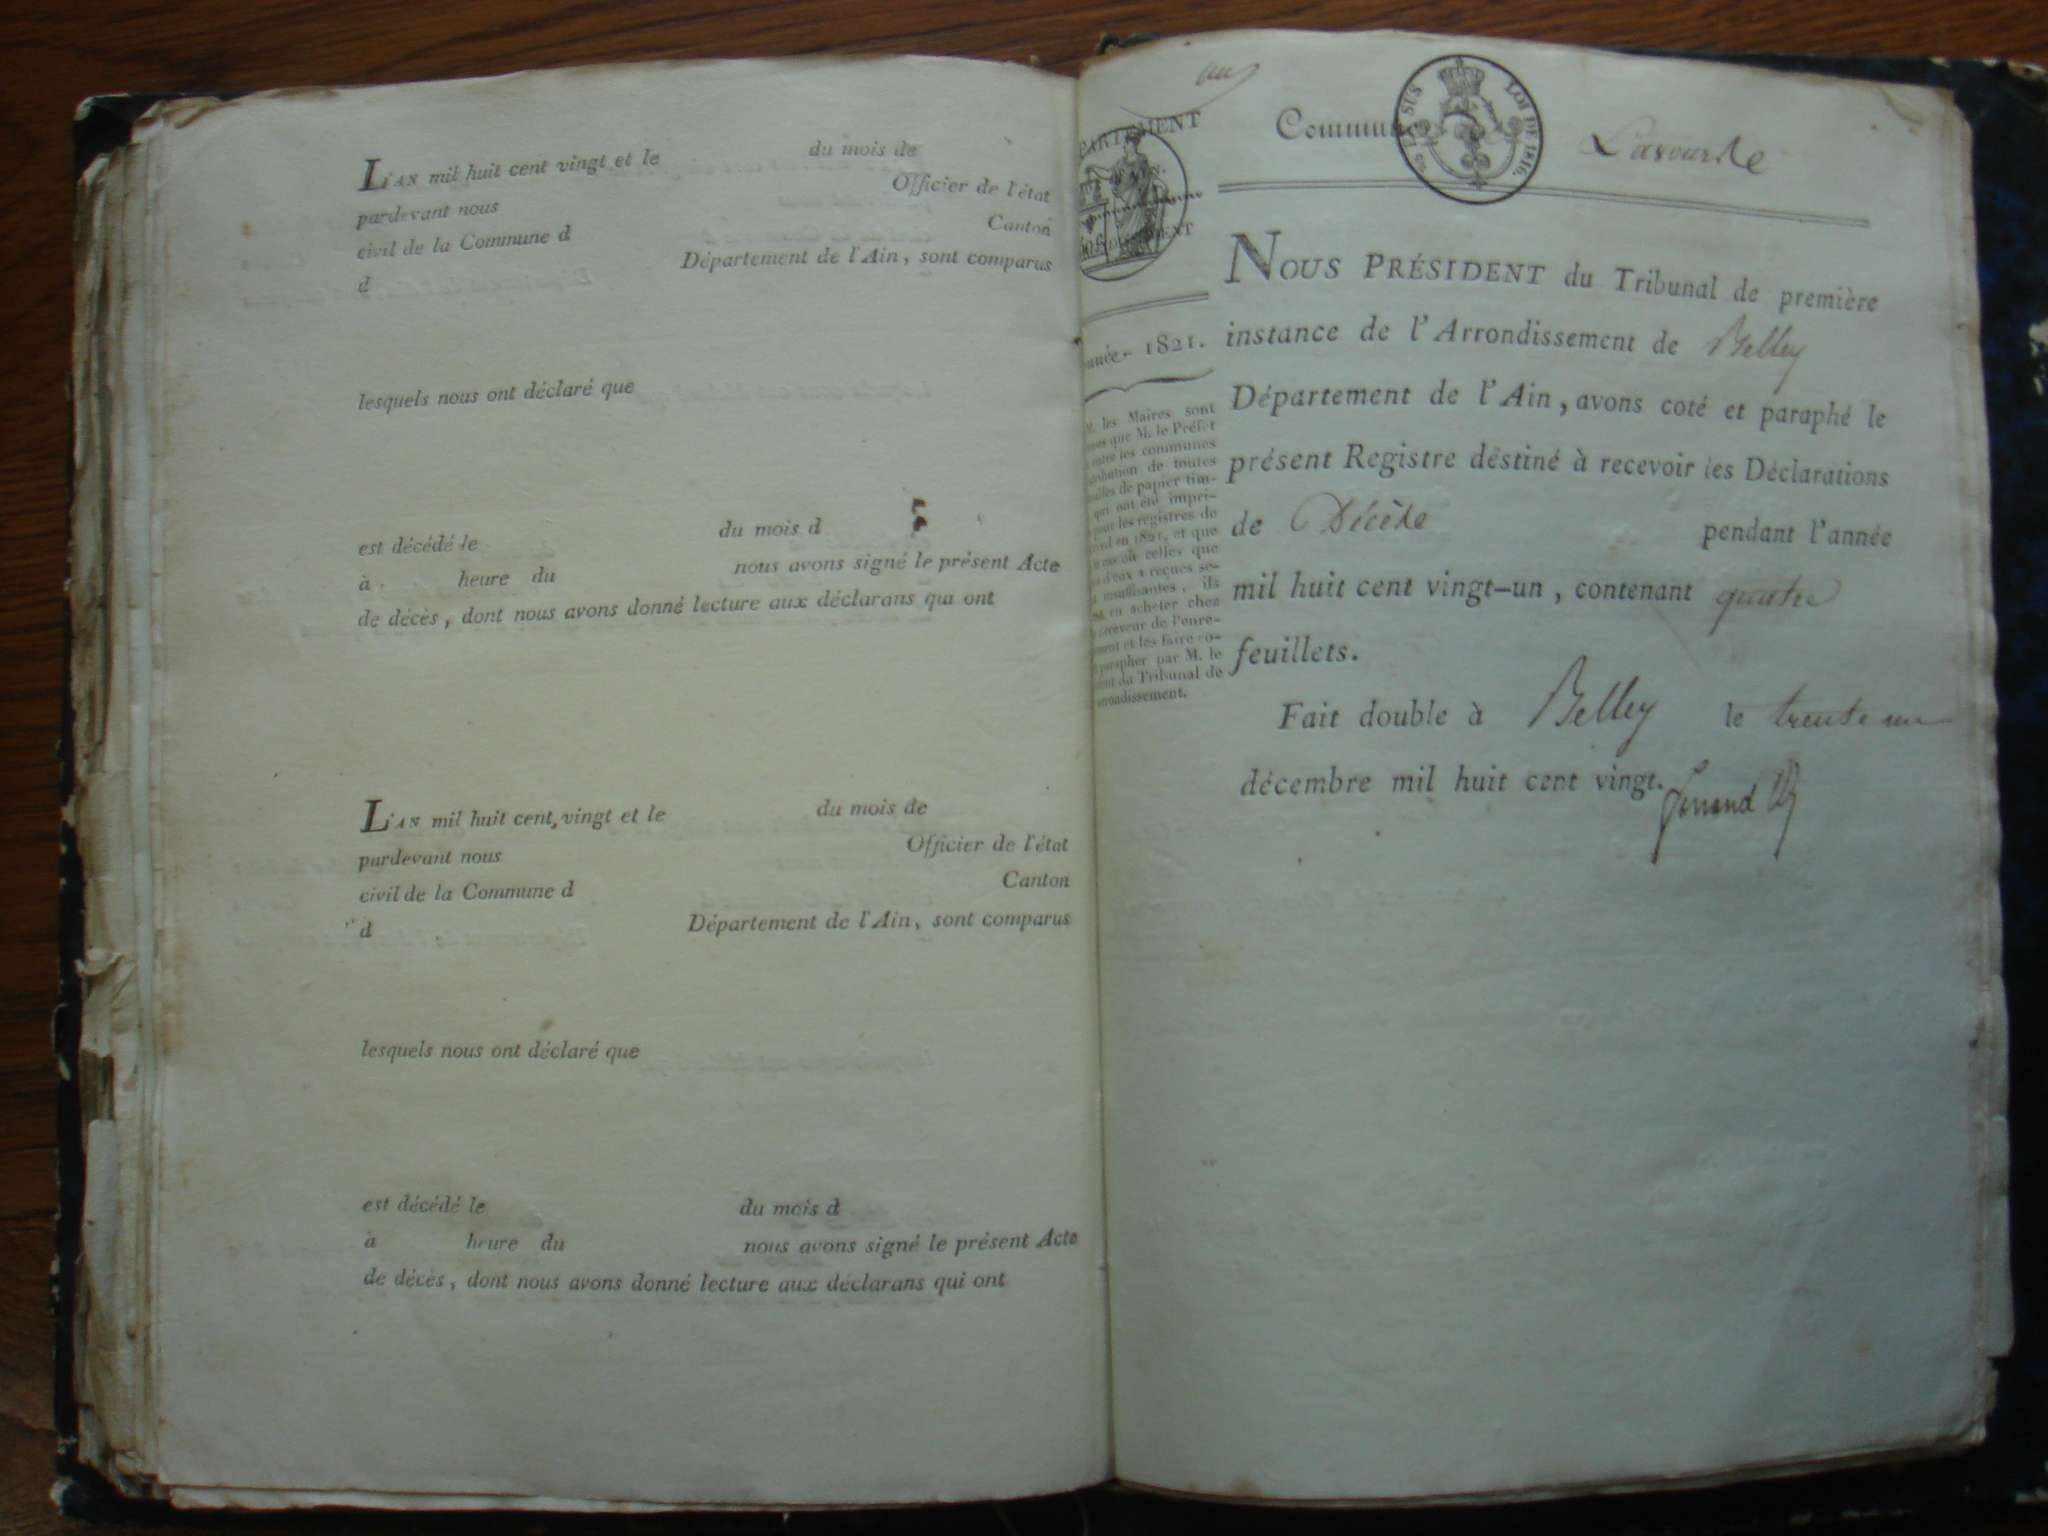 L'AN mil huit cent vingt et le du mois de
pardevant nous Officier de l'état
civil de la Commune d Canton
d Département de l'Ain, sont comparus
lesquels nous ont déclaré que
est décédé le du mois d
à heure du nous avons signé le présent Acte
de décès, dont nous avons donné lecture aux déclarans qui ont
L'AN mil huit cent vingt et le du mois de
pardevant nous Officier de l'état
civil de la Commune d Canton
d Département de l'Ain, sont comparus
lesquels nous ont déclaré que
est décédé le du mois d
à heure du nous avons signé le présent Acte
de décès, dont nous avons donné lecture aux déclarans qui ont
PARTEMENT
DE L'AIN.
nnée 1821.
M. les Maires sont
que M. le Préfet
entre les communes
de toutes
de papier tim-
qui ont été impri-
pour les registres de
civil en 1821, et que
cas où celles que
d'eux a reçues se-
insuffisantes, ils
en acheter chez
receveur de l'enre-
ment et les faire co-
parapher par M. le
ent du Tribunal de
rrondissement.
Commune
EN SUS LOI DE 1816.
NOUS PRÉSIDENT du Tribunal de première
instance de l'Arrondissement de Belley
Département de l'Ain, avons coté et paraphé le
présent Registre destiné à recevoir les Déclarations
de Décès pendant l'année
mil huit cent vingt-un, contenant quatre
feuillets.
Fait double à Belley le trente un
décembre mil huit cent vingt.